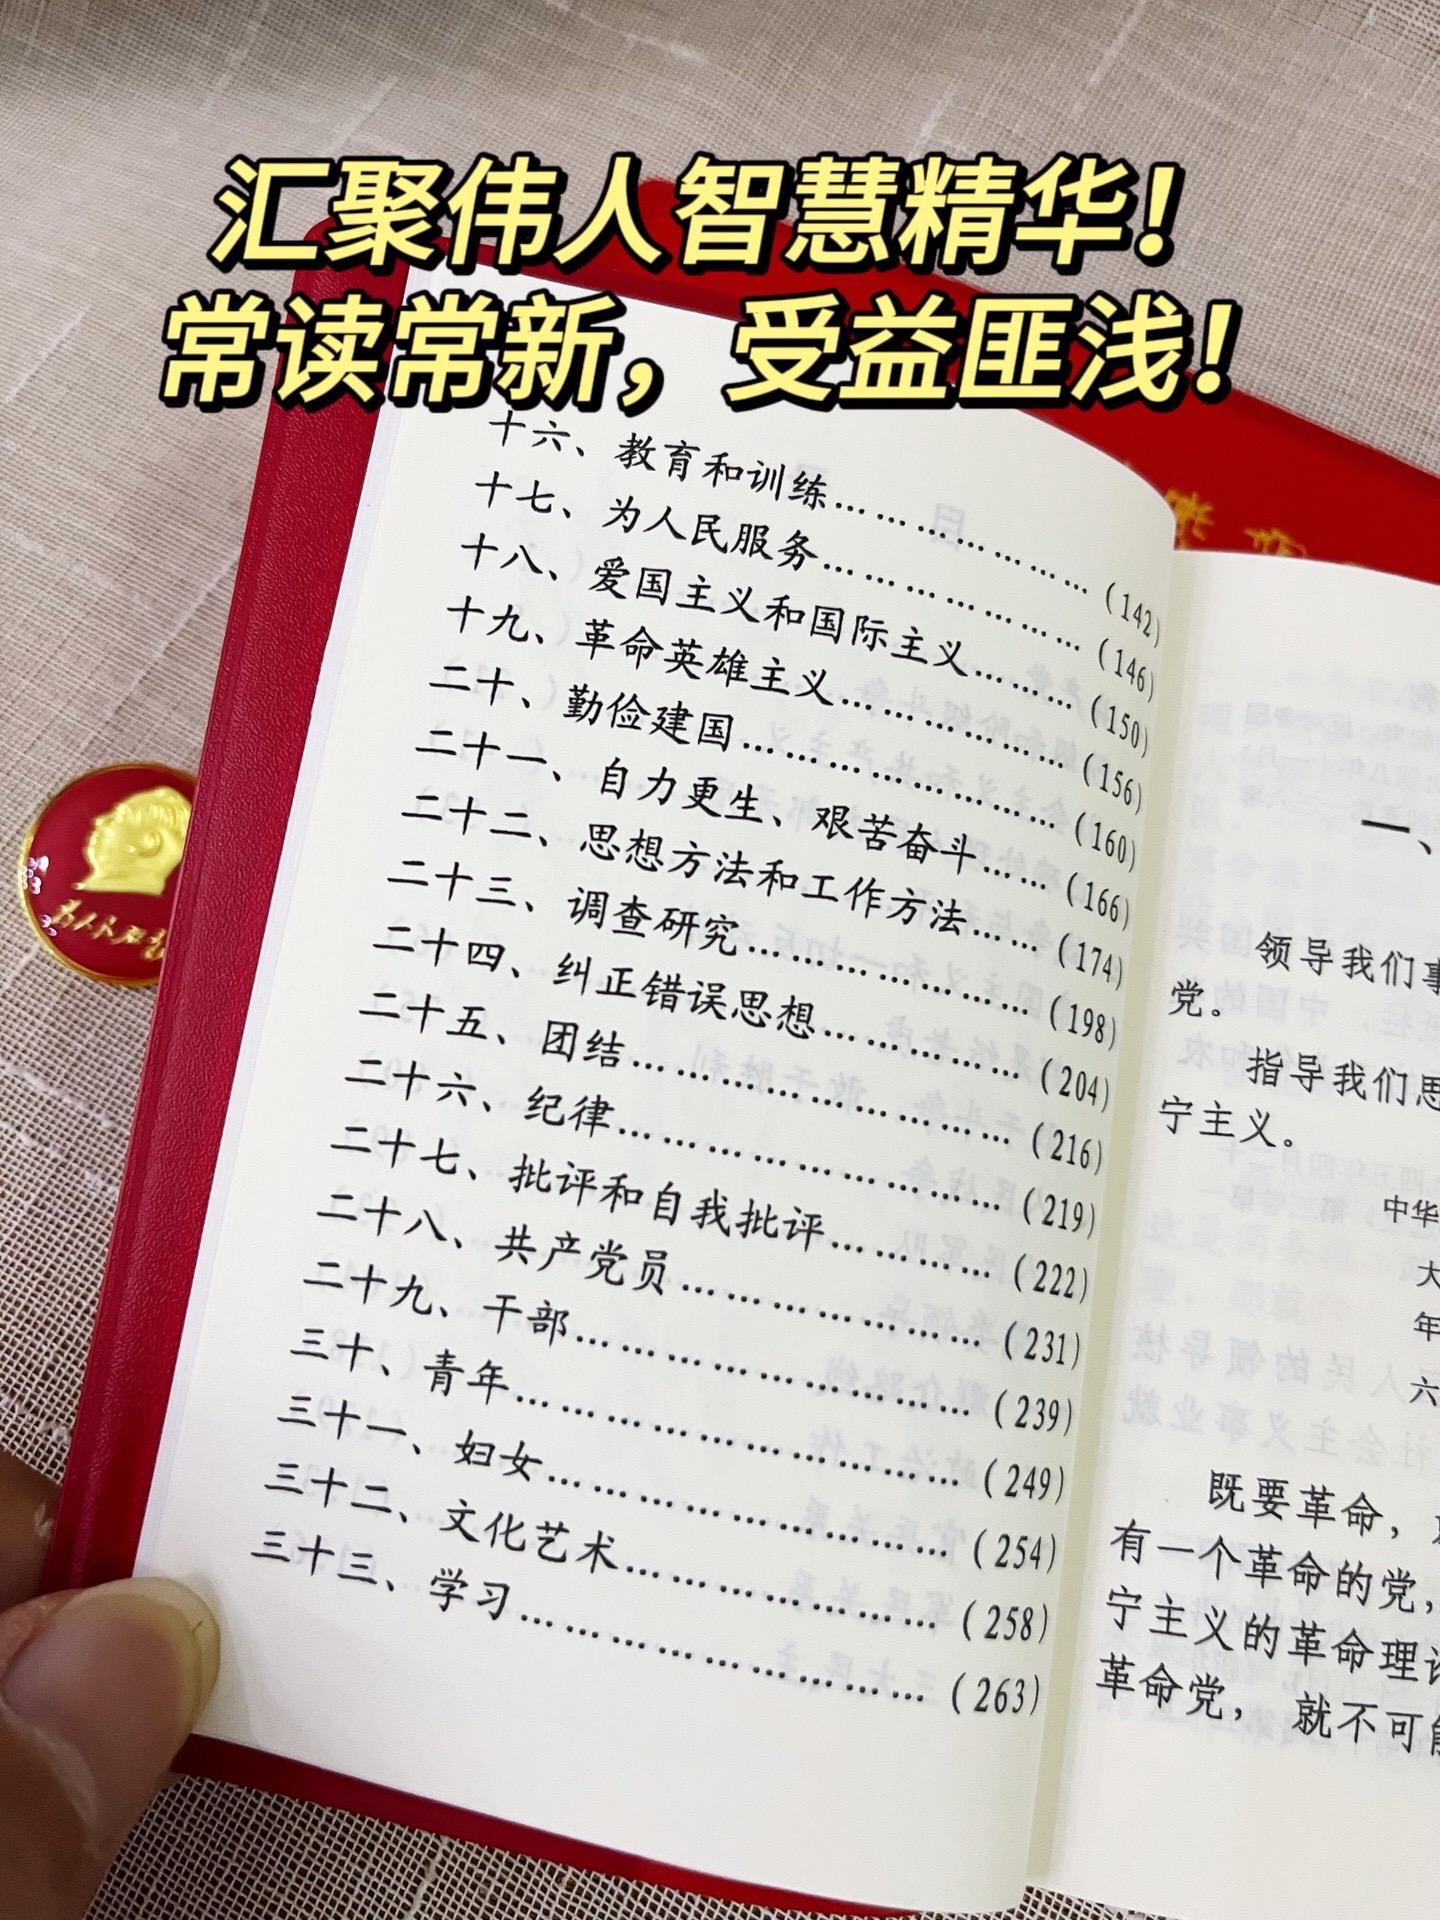 汇聚伟人智慧精华！
常读常新，受益匪浅！
十六、教育和训练……………………(142)
十七、为人民服务……………………(146)
十八、爱国主义和国际主义………(150)
十九、革命英雄主义…………………(156)
二十、勤俭建国………………………(160)
二十一、自力更生、艰苦奋斗……(166)
二十二、思想方法和工作方法……(174)
二十三、调查研究……………………(198)
二十四、纠正错误思想………………(204)
二十五、团结…………………………(216)
二十六、纪律…………………………(219)
二十七、批评和自我批评…………(222)
二十八、共产党员……………………(231)
二十九、干部…………………………(239)
三十、青年……………………………(249)
三十一、妇女…………………………(254)
三十二、文化艺术……………………(258)
三十三、学习…………………………(263)
一、
领导我们事
党。
指导我们思
宁主义。
中华
大
年
六
既要革命，
有一个革命的党，
宁主义的革命理
革命党， 就不可
为人民服